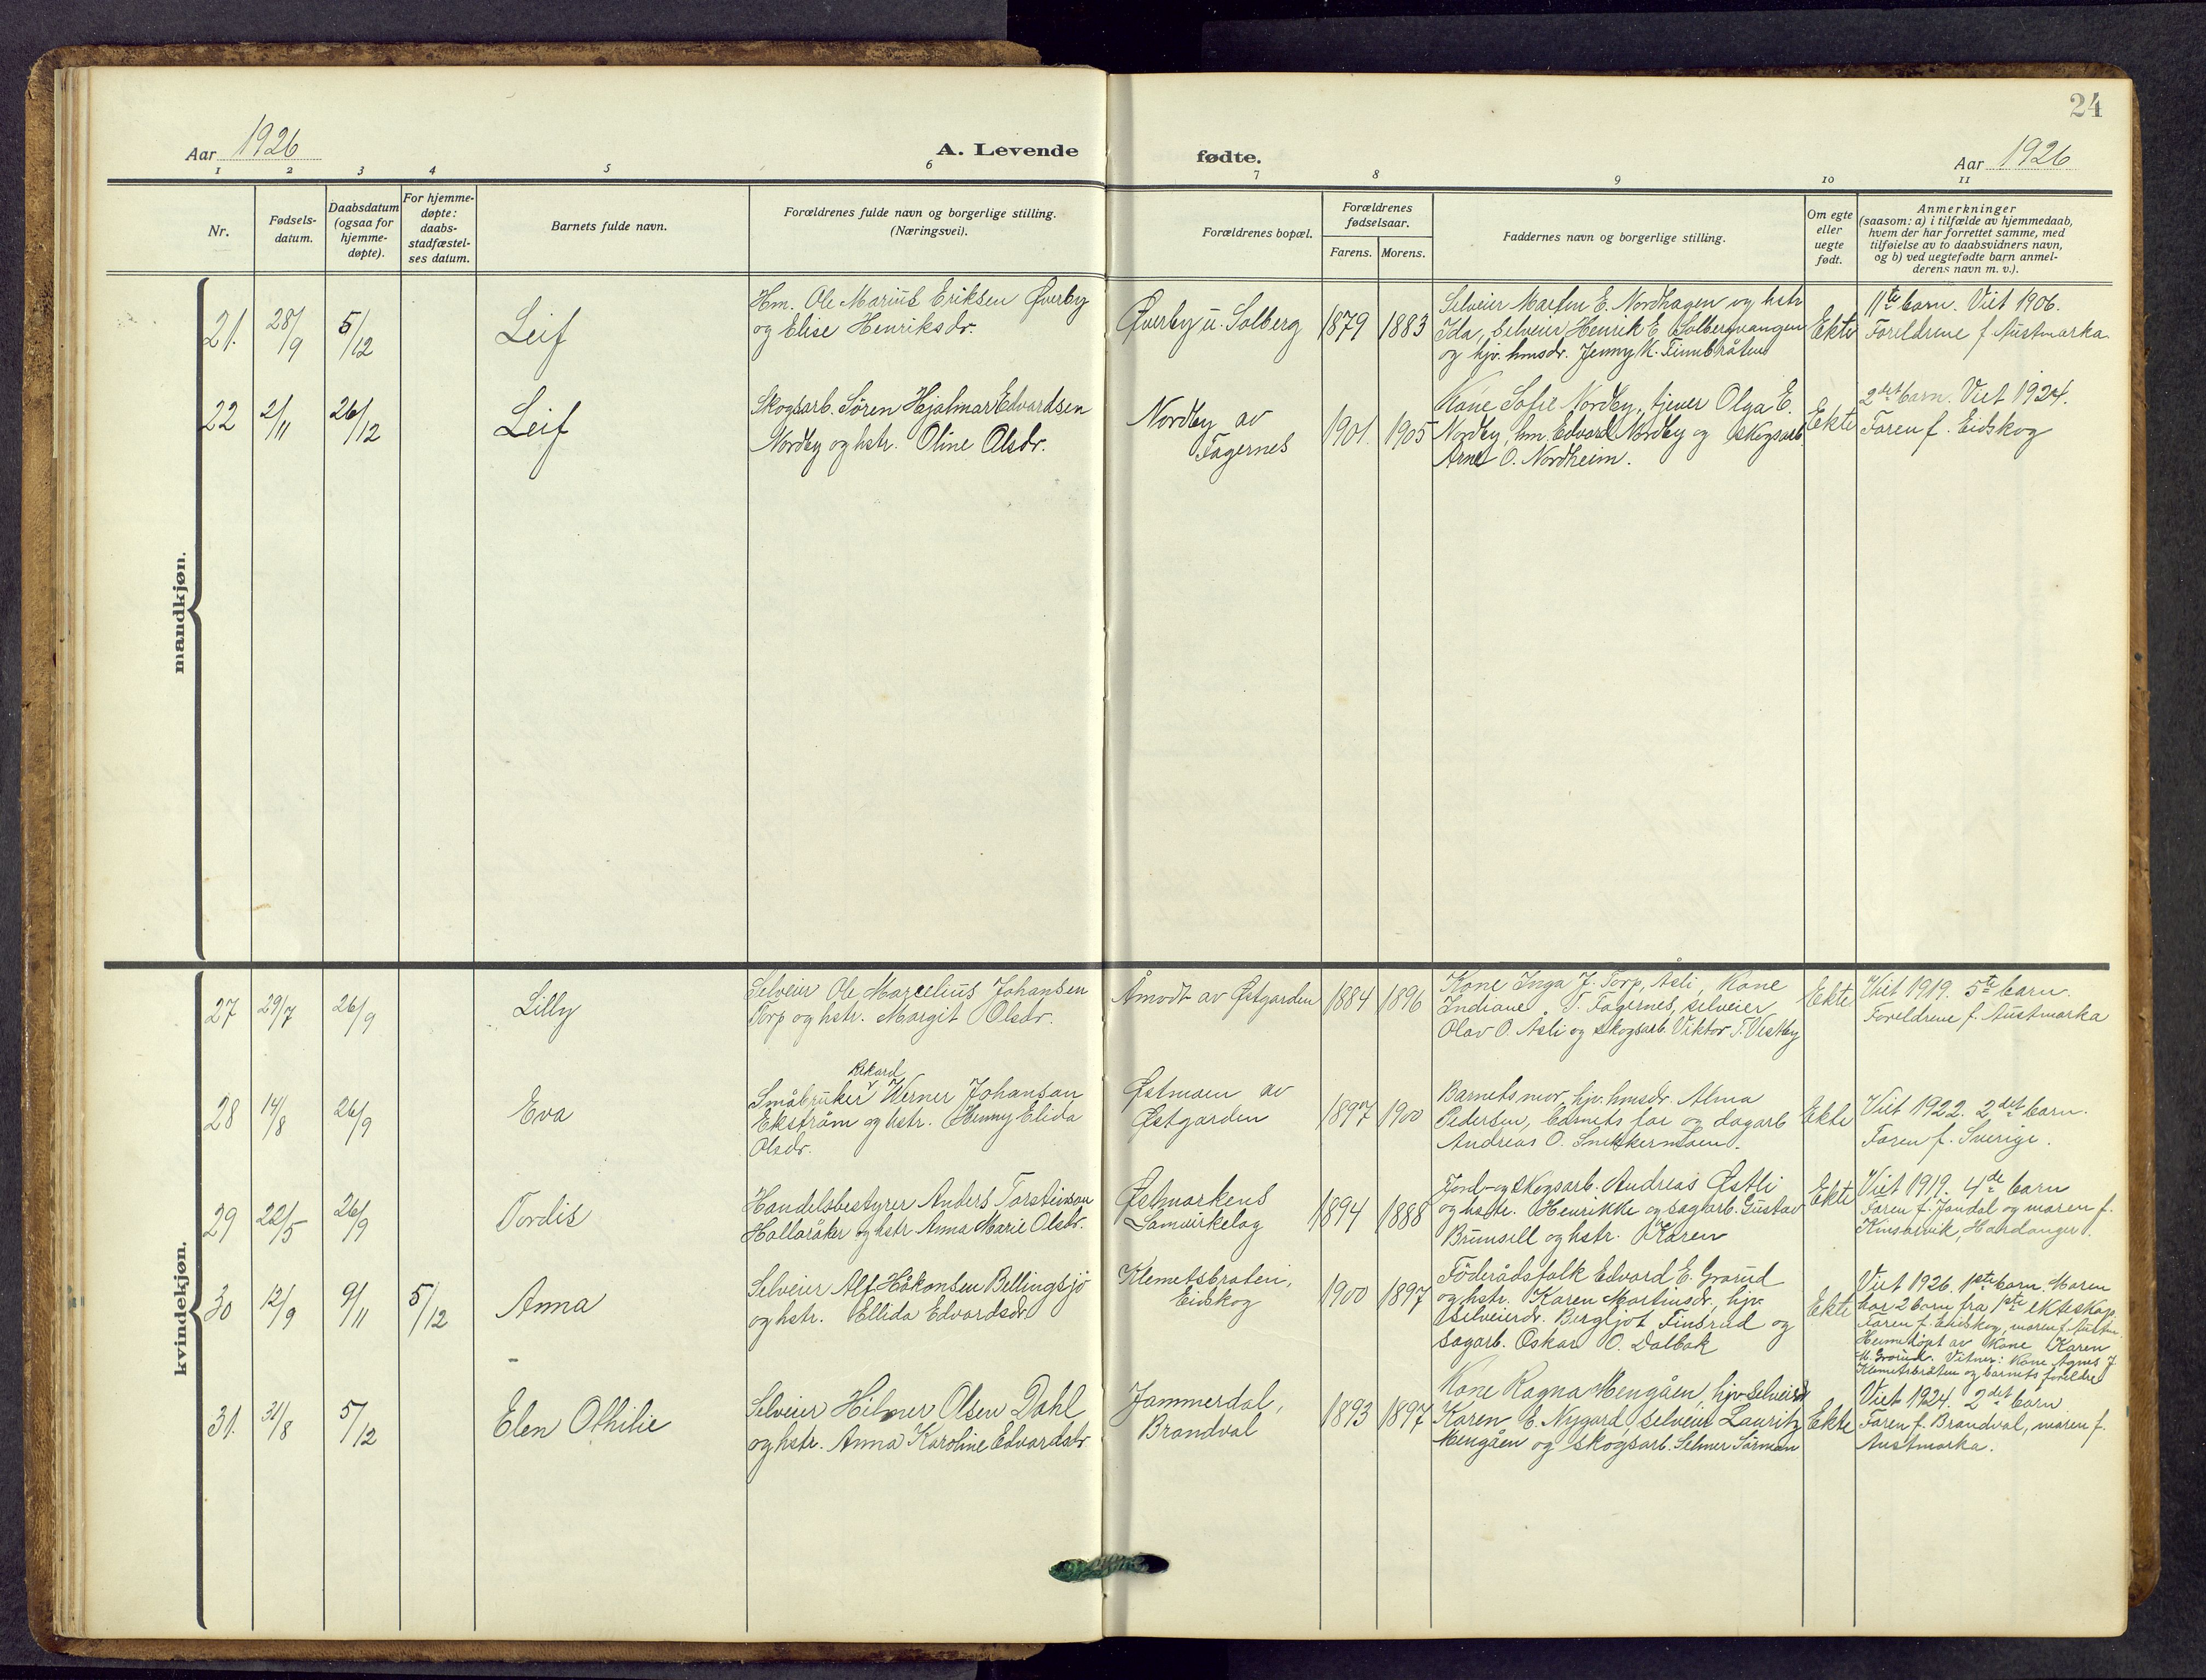 24
Aar 1926
A. Levende
fødte.
Aar 1926
1 2 3 4 5 6 7 8 9 10 11
Nr.
Fødsels-
datum.
Daabsdatum
(ogsaa for
hjemme-
døpte).
For hjemme-
døpte:
daabs-
stadfæstel-
ses datum.
Barnets fulde navn.
Forældrenes fulde navn og borgerlige stilling.
(Næringsvei).
Forældrenes bopæl.
Forældrenes
fødselsaar.
Farens. Morens.
Faddernes navn og borgerlige stilling.
Om egte
eller
uegte
født.
Anmerkninger
(saasom: a) i tilfælde av hjemmedaab,
hvem der har forrettet samme, med
tilføielse av to daabsvidners navn,
og b) ved uegtefødte barn anmel-
derens navn m. v.).
mandkjøn.
21. 28/9 5/12 Leif
Hm. Ole Marius Eriksen Øverby
og Elise Henriksdr.
Øverby u. Solberg 1879 1883
Selveier Marten E. Nordhagen og hstr
Ida, selveier Henrik E Solbermangen
og hjv. hmsdr. Jenny K. Finnbråten
Ekte
11te barn. Viet 1906.
Foreldrene f. Austmarka.
22 2/11 26/12 Leif
Skogsarb. Søren Hjalmar Edvardsen
Nordby og hstr. Oline Olsdr.
Nordby av
Fagernes
1901. 1905
Kone Sofie Nordby, tjener Olga E.
Nordby, hm. Edvard Nordby og skogsarb.
Arne O. Nordheim.
Ekte
2det barn. Viet 1924.
Faren f. Eidskog
kvindekjøn.
27 29/7 26/9 Lilly
Selveier Ole Marcelius Johansen
Torp og hstr. Margit Olsdr.
Åmodt av Østgarden 1884 1896
Kone Inga J. Torp, Åsli, Kone
Indiane T. Fagernes, selveier
Olav O. Åsli og skogsarb. Viktor T. Vestby
Ekte
Viet 1919. 5te barn.
Foreldrene f. Austmarka
28 14/8 26/9 Eva
Rikard
Småbruker Werner Johansson
Ekstrøm og hstr. Henny Elida
Olsdr.
Østmoen av
Østgarden
1897 1900
Barnets mor, hjv. hmsdr. Alma
Pedersen, barnets far og dagarb
Andreas O. Snekkermoen.
Ekte
Viet 1922. 2det barn.
Faren f. Sverige.
29 22/5 26/9 Tordis
Handelsbestyrer Anders Torsteinson
Hallaråker og hstr. Anna Marie Olsdr.
Østmarkens
Samvirkelag
1894 1888
Jord- og skogsarb. Andreas Østli
og hstr. Henrikke og sagarb. Gustav
Brunsell og hstr. Karen
Ekte
Viet 1919. 4de barn
Faren f. Jondal og moren f.
Kinsarvik, Hardanger.
30 12/9 9/11 5/12 Anna
Selveier Alf Håkonsen Bellingsjö
og hstr. Ellida Edvardsdr.
Klemetsbraten,
Eidskog
1900 1897
Föderådsfolk Edvard E. Grorud
og hstr. Karen Martinsdr., hjv.
selveierdr. Bergljot Finsrud og
sagarb. Oskar O. Dalbak
Ekte
Viet 1926. 1ste barn. Moren
har 2 barn fra 1ste ekteskap.
Faren f. Eidskog, moren f. Austm.
Heimedøpt av Kone Karen
M. Grorud. Vitner: Kone Agnes J
Klemetsbråten og barnets foreldre
31. 31/8 5/12 Elen Othilie
Selveier Hilmer Olsen Dahl
og hstr. Anna Karoline Edvardsdr
Jammerdal,
Brandval
1893 1897
Kone Ragna Mengåen, hjv. selveierdr
Karen E. Nygard, selveier Lauritz
Mengåen og skogsarb. Selmer Sörmoen
Ekte
Viet 1924. 2det barn
Faren f. Brandval, moren f.
Austmarka.